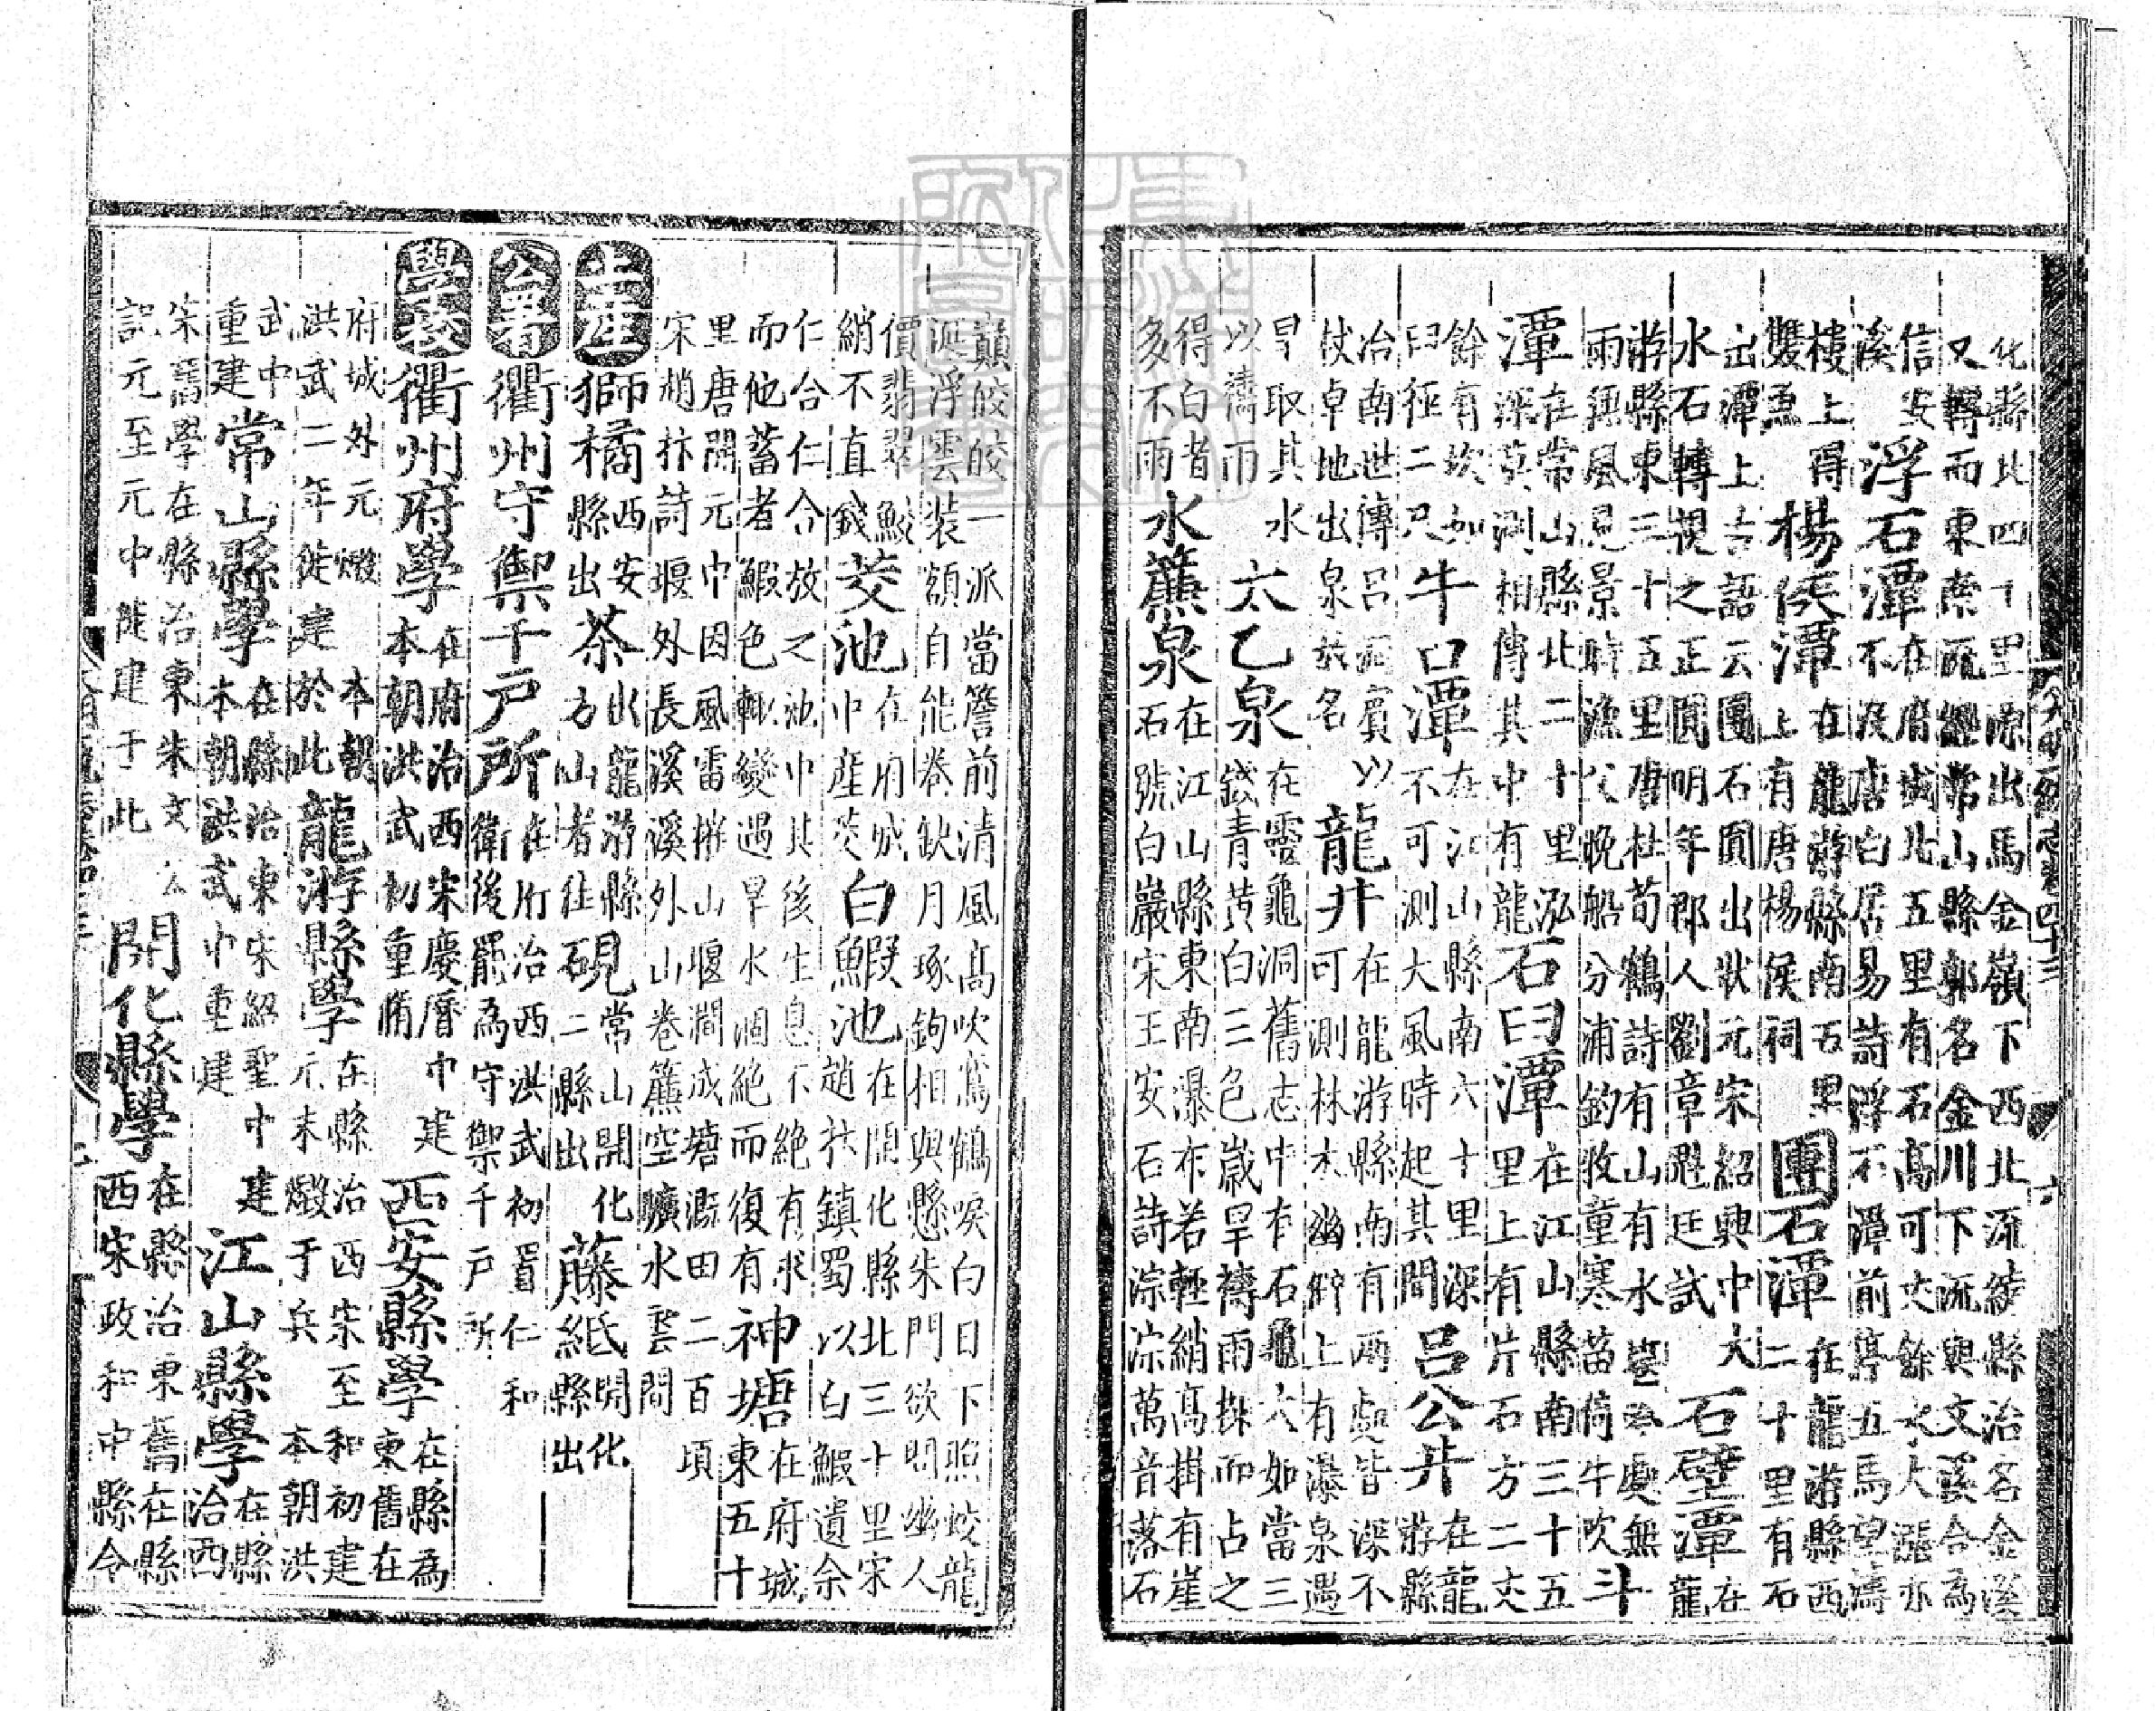 化縣北四十里源出馬金嶺下西北流繞縣治名金溪
又轉而東南流經常山縣郭名金川下流與文溪合為
信安溪
浮石潭
在府城北五里有石高可丈餘水大漲亦
不沒唐白居易詩浮石潭前停五馬望濤
樓上得雙魚
楊侯潭
在龍游縣南五里
上有唐楊侯祠
團石潭
在龍游縣西
二十里有石
出潭上古語云團石圓出狀元宋紹興中大
水石轉視之正圓明年郡人劉章魁廷試
石壁潭
在龍
游縣東三十五里唐杜荀鶴詩有山有水堪處無
雨無風見景時漁父晚船分浦釣牧童寒笛倚牛吹
斗潭
在常山縣北二十里泓
深莫測相傳其中有龍
石臼潭
在江山縣南三十五
里上有片石方二丈
餘有坎如
臼徑二尺
牛口潭
在江山縣南六十里深
不可測大風時起其間
呂公井
在龍
游縣
治南世傳呂洞賓以
杖卓地出泉故名
龍井
在龍游縣南有兩處皆深不
可測林木幽僻上有瀑泉遇
旱取其水
以禱雨
太乙泉
在靈龜洞舊志中有石龜大如當三
錢青黃白三色歲旱禱雨探而占之
得白者
多不雨
水簾泉
在江山縣東南瀑布若輕綃高掛有崖
石號白巖宋王安石詩淙淙萬音落石
巔皎皎一派當簷前清風高吹鸞鶴唳白日下照蛟龍
涎浮雲裝額自能卷缺月琢鉤相與懸朱門欲問幽人
價翡翠鮫
綃不直錢
茭池
在府城
中產茭
白鰕池
在開化縣北三十里宋
趙抃鎮蜀以白鰕遺余
仁合仁合放之池中其後生息不絕有求
而他蓄者鰕色輒變遇旱水涸絕而復有
神塘
在府城
東五十
里唐開元中因風雷摧山堰澗成塘溉田二百頃
宋趙抃詩堰外長溪溪外山卷簾空曠水雲間
土產
獅橘
西安
縣出
茶
出龍游縣
方山者佳
硯
常山開化
二縣出
藤紙
開化
縣出
公署
衢州守禦千戶所
在府治西洪武初置仁和
衛後罷為守禦千戶所
學校
衢州府學
在府治西宋慶曆中建
本朝洪武初重脩
西安縣學
在縣為
東舊在
府城外元燬本朝
洪武二年徙建於此
龍游縣學
在縣治西宋至和初建
元末燬于兵本朝洪
武中
重建
常山縣學
在縣治東宋紹聖中建
本朝洪武中重建
江山縣學
在縣
治西
宋舊學在縣治東朱文公
記元至元中徙建于此
開化縣學
在縣治東舊在縣
西宋政和中縣令